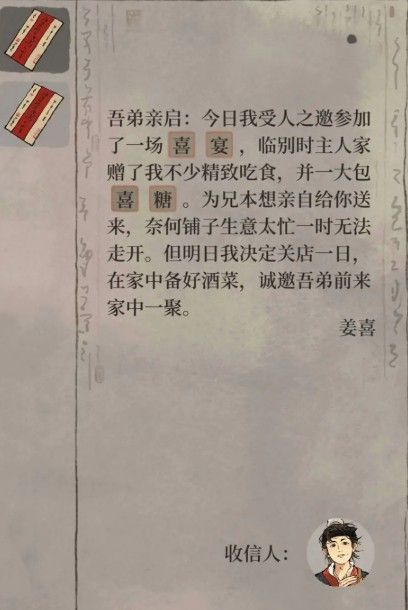 吾弟亲启：今日我受人之邀参加
了一场喜宴，临别时主人家
赠了我不少精致吃食，并一大包
喜糖。为兄本想亲自给你送
来，奈何铺子生意太忙一时无法
走开。但明日我决定关店一日，
在家中备好酒菜，诚邀吾弟前来
家中一聚。
姜喜
收信人：